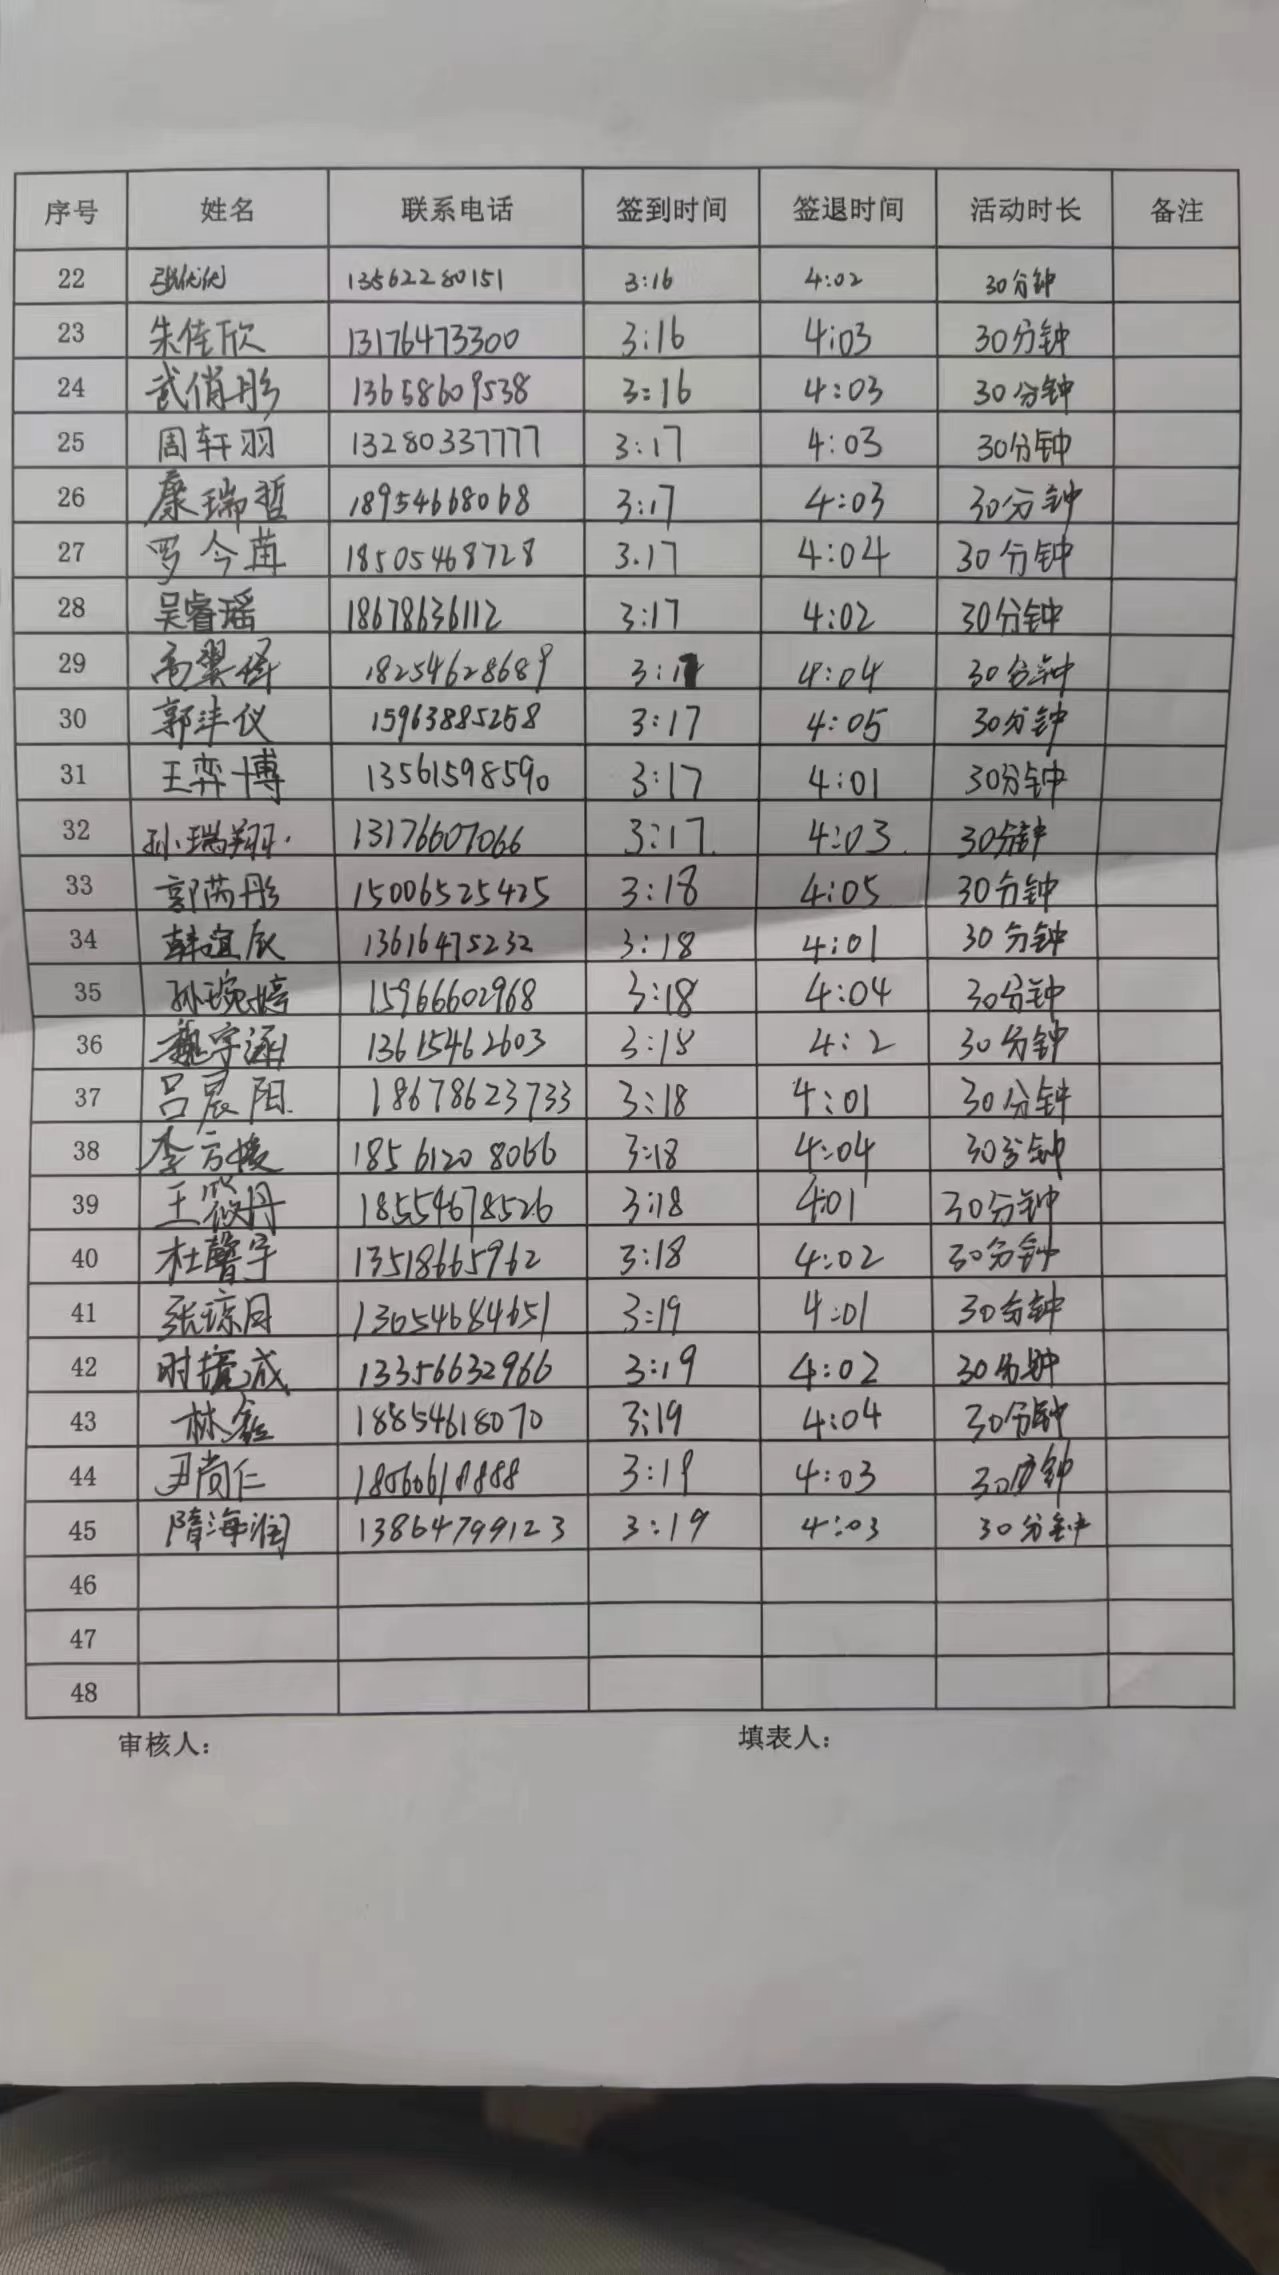 序号 姓名 联系电话 签到时间 签退时间 活动时长 备注
22 13562280151 3:16 4:02 30分钟
23 朱佳欣 13176473300 3:16 4:03 30分钟
24 武俏彤 13658609538 3:16 4:03 30分钟
25 周轩羽 13280337777 3:17 4:03 30分钟
26 康瑞哲 18954668068 3:17 4:03 30分钟
27 罗今苒 18505468728 3.17 4:04 30分钟
28 吴睿瑶 18678636112 3:17 4:02 30分钟
29 18254628689 3:17 4:04 30分钟
30 郭沣仪 15963885258 3:17 4:05 30分钟
31 王弈博 13561598590 3:17 4:01 30分钟
32 孙瑞翔 13176607066 3:17 4:03 30分钟
33 郭芮彤 15006525425 3:18 4:05 30分钟
34 韩谊辰 13616475232 3:18 4:01 30分钟
35 孙琬婷 15966602968 3:18 4:04 30分钟
36 魏宇涵 13615462603 3:18 4:2 30分钟
37 吕宸阳 18678623733 3:18 4:01 30分钟
38 18561208066 3:18 4:04 30分钟
39 王筱丹 18554678526 3:18 4:01 30分钟
40 杜馨宇 13518665962 3:18 4:02 30分钟
41 张琼月 13054684651 3:19 4:01 30分钟
42 13356632966 3:19 4:02 30分钟
43 林鑫 18854618070 3:19 4:04 30分钟
44 尹尚仁 3:19 4:03 30分钟
45 隋海润 13864799123 3:19 4:03 30分钟
46
47
48
审核人： 填表人：